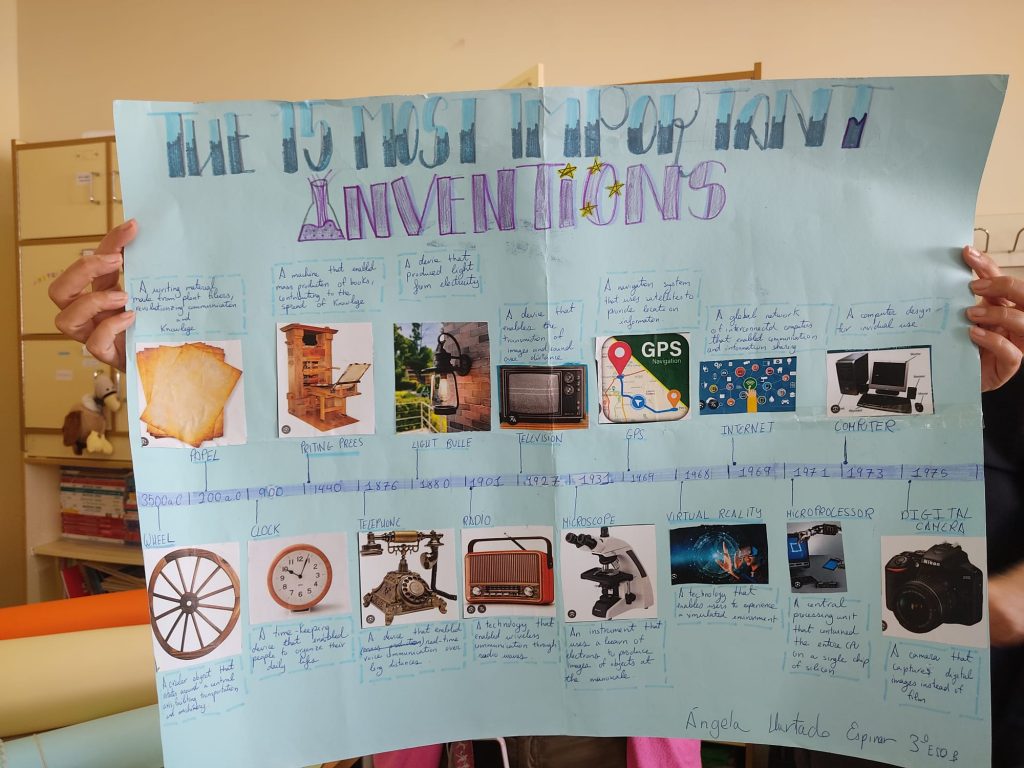 THE 15 MOST IMPORTANT
INVENTIONS
A writing material
made from plant fibers,
revolutionizing communication
and
Knowlege
A machine that enabled
mass production of books,
contributing to the
spread of Knowlege
A device that
produced light
from electricity
A device that
enables the
transmition of
images and sound
over distance.
A navigation system
that uses satellites to
provide location
information.
A global network
of interconnected computers
that enabled communications
and information sharing
A computer design
for invidual use.
GPS
Navigation
PAPEL
PRITING PREES
LIGHT BULLE
TELEVISION
GPS
INTERNET
COMPUTER
3500 a C | 200 a C | 900 | 1440 | 1876 | 1880 | 1901 | 1927 | 1931 | 1969 | 1968 | 1969 | 1971 | 1973 | 1975
WHEEL
CLOCK
TELEPHONE
RADIO
MICROSCOPE
VIRTUAL REALITY
MICROPROCESSOR
DIGITAL
CAMERA
Nikon
A circular object that
rotates around a central
axis, building transportation
and machinery.
A time-keeping
device that enabled
people to organize their
daily lifes
A device that enabled
real-time
voice communication over
long distances.
A technology that
enabled wireless
communication through
radio waves.
An instrument that
uses a beam of
electrons to produce
images of objects at
the nanoscale
A technology that
enables users to experience
a symulated environment
A central
processing unit
that contained the
entire CPU
on a single chip
of silicon
A camera that
captures digital
images instead of
film
Ángela Hurtado Espinar 3º ESO B